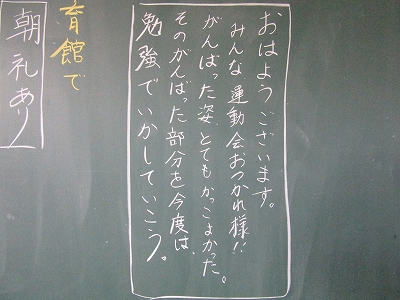 おはようございます。
みんな運動会おつかれ様!!
がんばった姿、とてもかっこよかった。
そのがんばった部分を今度は、
勉強でいかしていこう。
育館で
朝礼あり